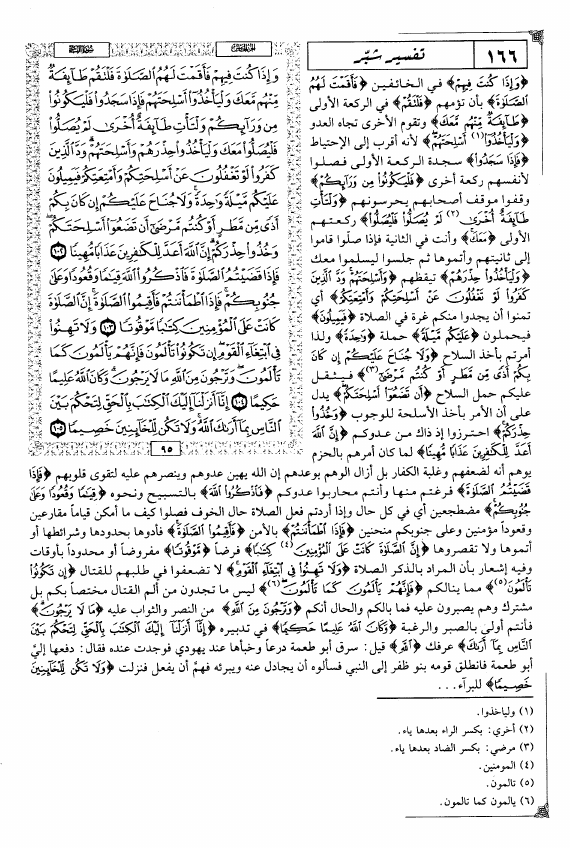 ١٦٦
تفسير شبّر
﴿وَإِذَا كُنتَ فِيهِمْ﴾ في الخائفين ﴿فَأَقَمْتَ لَهُمُ
الصَّلَاةَ﴾ بأن تؤمهم ﴿فَلْتَقُمْ﴾ في الركعة الأولى
﴿طَائِفَةٌ مِّنْهُم مَّعَكَ﴾ وتقوم الأخرى تجاه العدو
﴿وَلْيَأْخُذُوا(١) أَسْلِحَتَهُمْ﴾ لأنه أقرب إلى الإحتياط
﴿فَإِذَا سَجَدُوا﴾ سجدة الركعة الأولى فصلوا
لأنفسهم ركعة أخرى ﴿فَلْيَكُونُوا مِن وَرَائِكُمْ﴾
وقفوا موقف أصحابهم يحرسونهم ﴿وَلْتَأْتِ
طَائِفَةٌ أُخْرَى(٢) لَمْ يُصَلُّوا فَلْيُصَلُّوا﴾ ركعتهم
الأولى ﴿مَعَكَ﴾ وأنت في الثانية فإذا صلّوا قاموا
إلى ثانيتهم وأتموها ثم جلسوا ليسلموا معك
﴿وَلْيَأْخُذُوا حِذْرَهُمْ﴾ تيقظهم ﴿وَأَسْلِحَتَهُمْ وَدَّ الَّذِينَ
كَفَرُوا لَوْ تَغْفُلُونَ عَنْ أَسْلِحَتِكُمْ وَأَمْتِعَتِكُمْ﴾ أي
تمنوا أن يجدوا منكم غرة في الصلاة ﴿فَيَمِيلُونَ﴾
فيحملون ﴿عَلَيْكُم مَّيْلَةً﴾ حملة ﴿وَاحِدَةً﴾ ولذا
أمرتم بأخذ السلاح ﴿وَلَا جُنَاحَ عَلَيْكُمْ إِن كَانَ
بِكُمْ أَذًى مِّن مَّطَرٍ أَوْ كُنتُم مَّرْضَى(٣)﴾ فيثقل
عليكم حمل السلاح ﴿أَن تَضَعُوا أَسْلِحَتَكُمْ﴾ يدل
على أن الأمر بأخذ الأسلحة للوجوب ﴿وَخُذُوا
حِذْرَكُمْ﴾ احترزوا إذ ذاك من عدوكم ﴿إِنَّ اللَّهَ
أَعَدَّ لِلْكَافِرِينَ عَذَابًا مُّهِينًا﴾ لما كان أمرهم بالحزم
وَإِذَا كُنتَ فِيهِمْ فَأَقَمْتَ لَهُمُ الصَّلَاةَ فَلْتَقُمْ طَائِفَةٌ
مِّنْهُم مَّعَكَ وَلْيَأْخُذُوا أَسْلِحَتَهُمْ فَإِذَا سَجَدُوا فَلْيَكُونُوا
مِن وَرَائِكُمْ وَلْتَأْتِ طَائِفَةٌ أُخْرَى لَمْ يُصَلُّوا
فَلْيُصَلُّوا مَعَكَ وَلْيَأْخُذُوا حِذْرَهُمْ وَأَسْلِحَتَهُمْ وَدَّ الَّذِينَ
كَفَرُوا لَوْ تَغْفُلُونَ عَنْ أَسْلِحَتِكُمْ وَأَمْتِعَتِكُمْ فَيَمِيلُونَ
عَلَيْكُم مَّيْلَةً وَاحِدَةً وَلَا جُنَاحَ عَلَيْكُمْ إِن كَانَ بِكُمْ
أَذًى مِّن مَّطَرٍ أَوْ كُنتُم مَّرْضَى أَن تَضَعُوا أَسْلِحَتَكُمْ
وَخُذُوا حِذْرَكُمْ إِنَّ اللَّهَ أَعَدَّ لِلْكَافِرِينَ عَذَابًا مُّهِينًا ١٠٢
فَإِذَا قَضَيْتُمُ الصَّلَاةَ فَاذْكُرُوا اللَّهَ قِيَامًا وَقُعُودًا وَعَلَى
جُنُوبِكُمْ فَإِذَا اطْمَأْنَنتُمْ فَأَقِيمُوا الصَّلَاةَ إِنَّ الصَّلَاةَ
كَانَتْ عَلَى الْمُؤْمِنِينَ كِتَابًا مَّوْقُوتًا ١٠٣ وَلَا تَهِنُوا
فِي ابْتِغَاءِ الْقَوْمِ إِن تَكُونُوا تَأْلَمُونَ فَإِنَّهُمْ يَأْلَمُونَ كَمَا
تَأْلَمُونَ وَتَرْجُونَ مِنَ اللَّهِ مَا لَا يَرْجُونَ وَكَانَ اللَّهُ عَلِيمًا
حَكِيمًا ١٠٤ إِنَّا أَنزَلْنَا إِلَيْكَ الْكِتَابَ بِالْحَقِّ لِتَحْكُمَ بَيْنَ
النَّاسِ بِمَا أَرَاكَ اللَّهُ وَلَا تَكُن لِّلْخَائِنِينَ خَصِيمًا ١٠٥
٩٥
يوهم أنه لضعفهم وغلبة الكفار بل أزال الوهم بوعدهم إن الله يهين عدوهم وينصرهم عليه لتقوى قلوبهم ﴿فَإِذَا
قَضَيْتُمُ الصَّلَاةَ﴾ فرغتم منها وأنتم محاربوا عدوكم ﴿فَاذْكُرُوا اللَّهَ﴾ بالتسبيح ونحوه ﴿قِيَامًا وَقُعُودًا وَعَلَى
جُنُوبِكُمْ﴾ مضطجعين أي في كل حال وإذا أردتم فعل الصلاة حال الخوف فصلوا كيف ما أمكن قياماً مقارعين
وقعوداً مؤمنين وعلى جنوبكم منحنين ﴿فَإِذَا اطْمَأْنَنتُمْ﴾ بالأمن ﴿فَأَقِيمُوا الصَّلَاةَ﴾ فأدوها بحدودها وشرائطها أو
أتموها ولا تقصروها ﴿إِنَّ الصَّلَاةَ كَانَتْ عَلَى الْمُؤْمِنِينَ(٤) كِتَابًا﴾ فرضاً ﴿مَّوْقُوتًا﴾ مفروضاً أو محدوداً بأوقات
وفيه إشعار بأن المراد بالذكر الصلاة ﴿وَلَا تَهِنُوا فِي ابْتِغَاءِ الْقَوْمِ﴾ لا تضعفوا في طلبهم للقتال ﴿إِن تَكُونُوا
تَأْلَمُونَ(٥)﴾ مما ينالكم ﴿فَإِنَّهُمْ يَأْلَمُونَ كَمَا تَأْلَمُونَ(٦)﴾ ليس ما تجدون من ألم القتال مختصاً بكم بل
مشترك وهم يصبرون عليه فما بالكم والحال أنكم ﴿وَتَرْجُونَ مِنَ اللَّهِ﴾ من النصر والثواب عليه ﴿مَا لَا يَرْجُونَ﴾
فأنتم أولى بالصبر والرغبة ﴿وَكَانَ اللَّهُ عَلِيمًا حَكِيمًا﴾ في تدبيره ﴿إِنَّا أَنزَلْنَا إِلَيْكَ الْكِتَابَ بِالْحَقِّ لِتَحْكُمَ بَيْنَ
النَّاسِ بِمَا أَرَاكَ﴾ عرفك ﴿اللَّهُ﴾ قيل: سرق أبو طعمة درعاً وخبأها عند يهودي فوجدت عنده فقال: دفعها إليّ
أبو طعمة فانطلق قومه بنو ظفر إلى النبي فسألوه أن يجادل عنه ويبرئه فهمّ أن يفعل فنزلت ﴿وَلَا تَكُن لِّلْخَائِنِينَ
خَصِيمًا﴾ للبرآء...
(١) ولياخذوا.
(٢) أخري: بكسر الراء بعدها ياء.
(٣) مرضي: بكسر الضاد بعدها ياء.
(٤) المومنين.
(٥) تالمون.
(٦) يالمون كما تالمون.